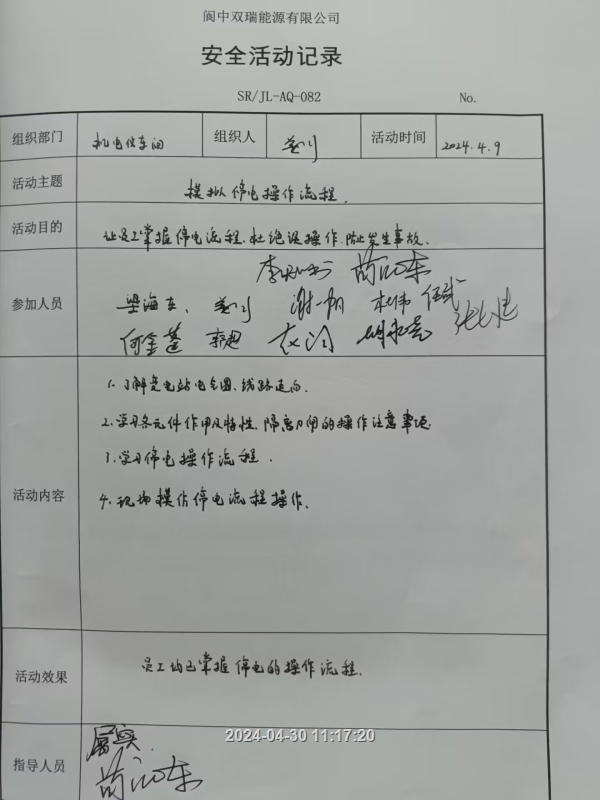 阆中双瑞能源有限公司
安全活动记录
SR/JL-AQ-082 No.
组织部门 机电仪车间 组织人 活动时间 2024.4.9
活动主题 模拟停电操作流程.
活动目的 让员工掌握停电流程.杜绝误操作.防止发生事故.
参加人员
梁海东、谢一帆 杜伟
何金蓬 李超
活动内容
1.了解变电站电气图、线路走向.
2.学习各元件作用及特性.隔离刀闸的操作注意事项.
3.学习停电操作流程.
4.现场模仿停电流程操作.
活动效果 员工均已掌握停电的操作流程.
指导人员 属实.
2024-04-30 11:17:20